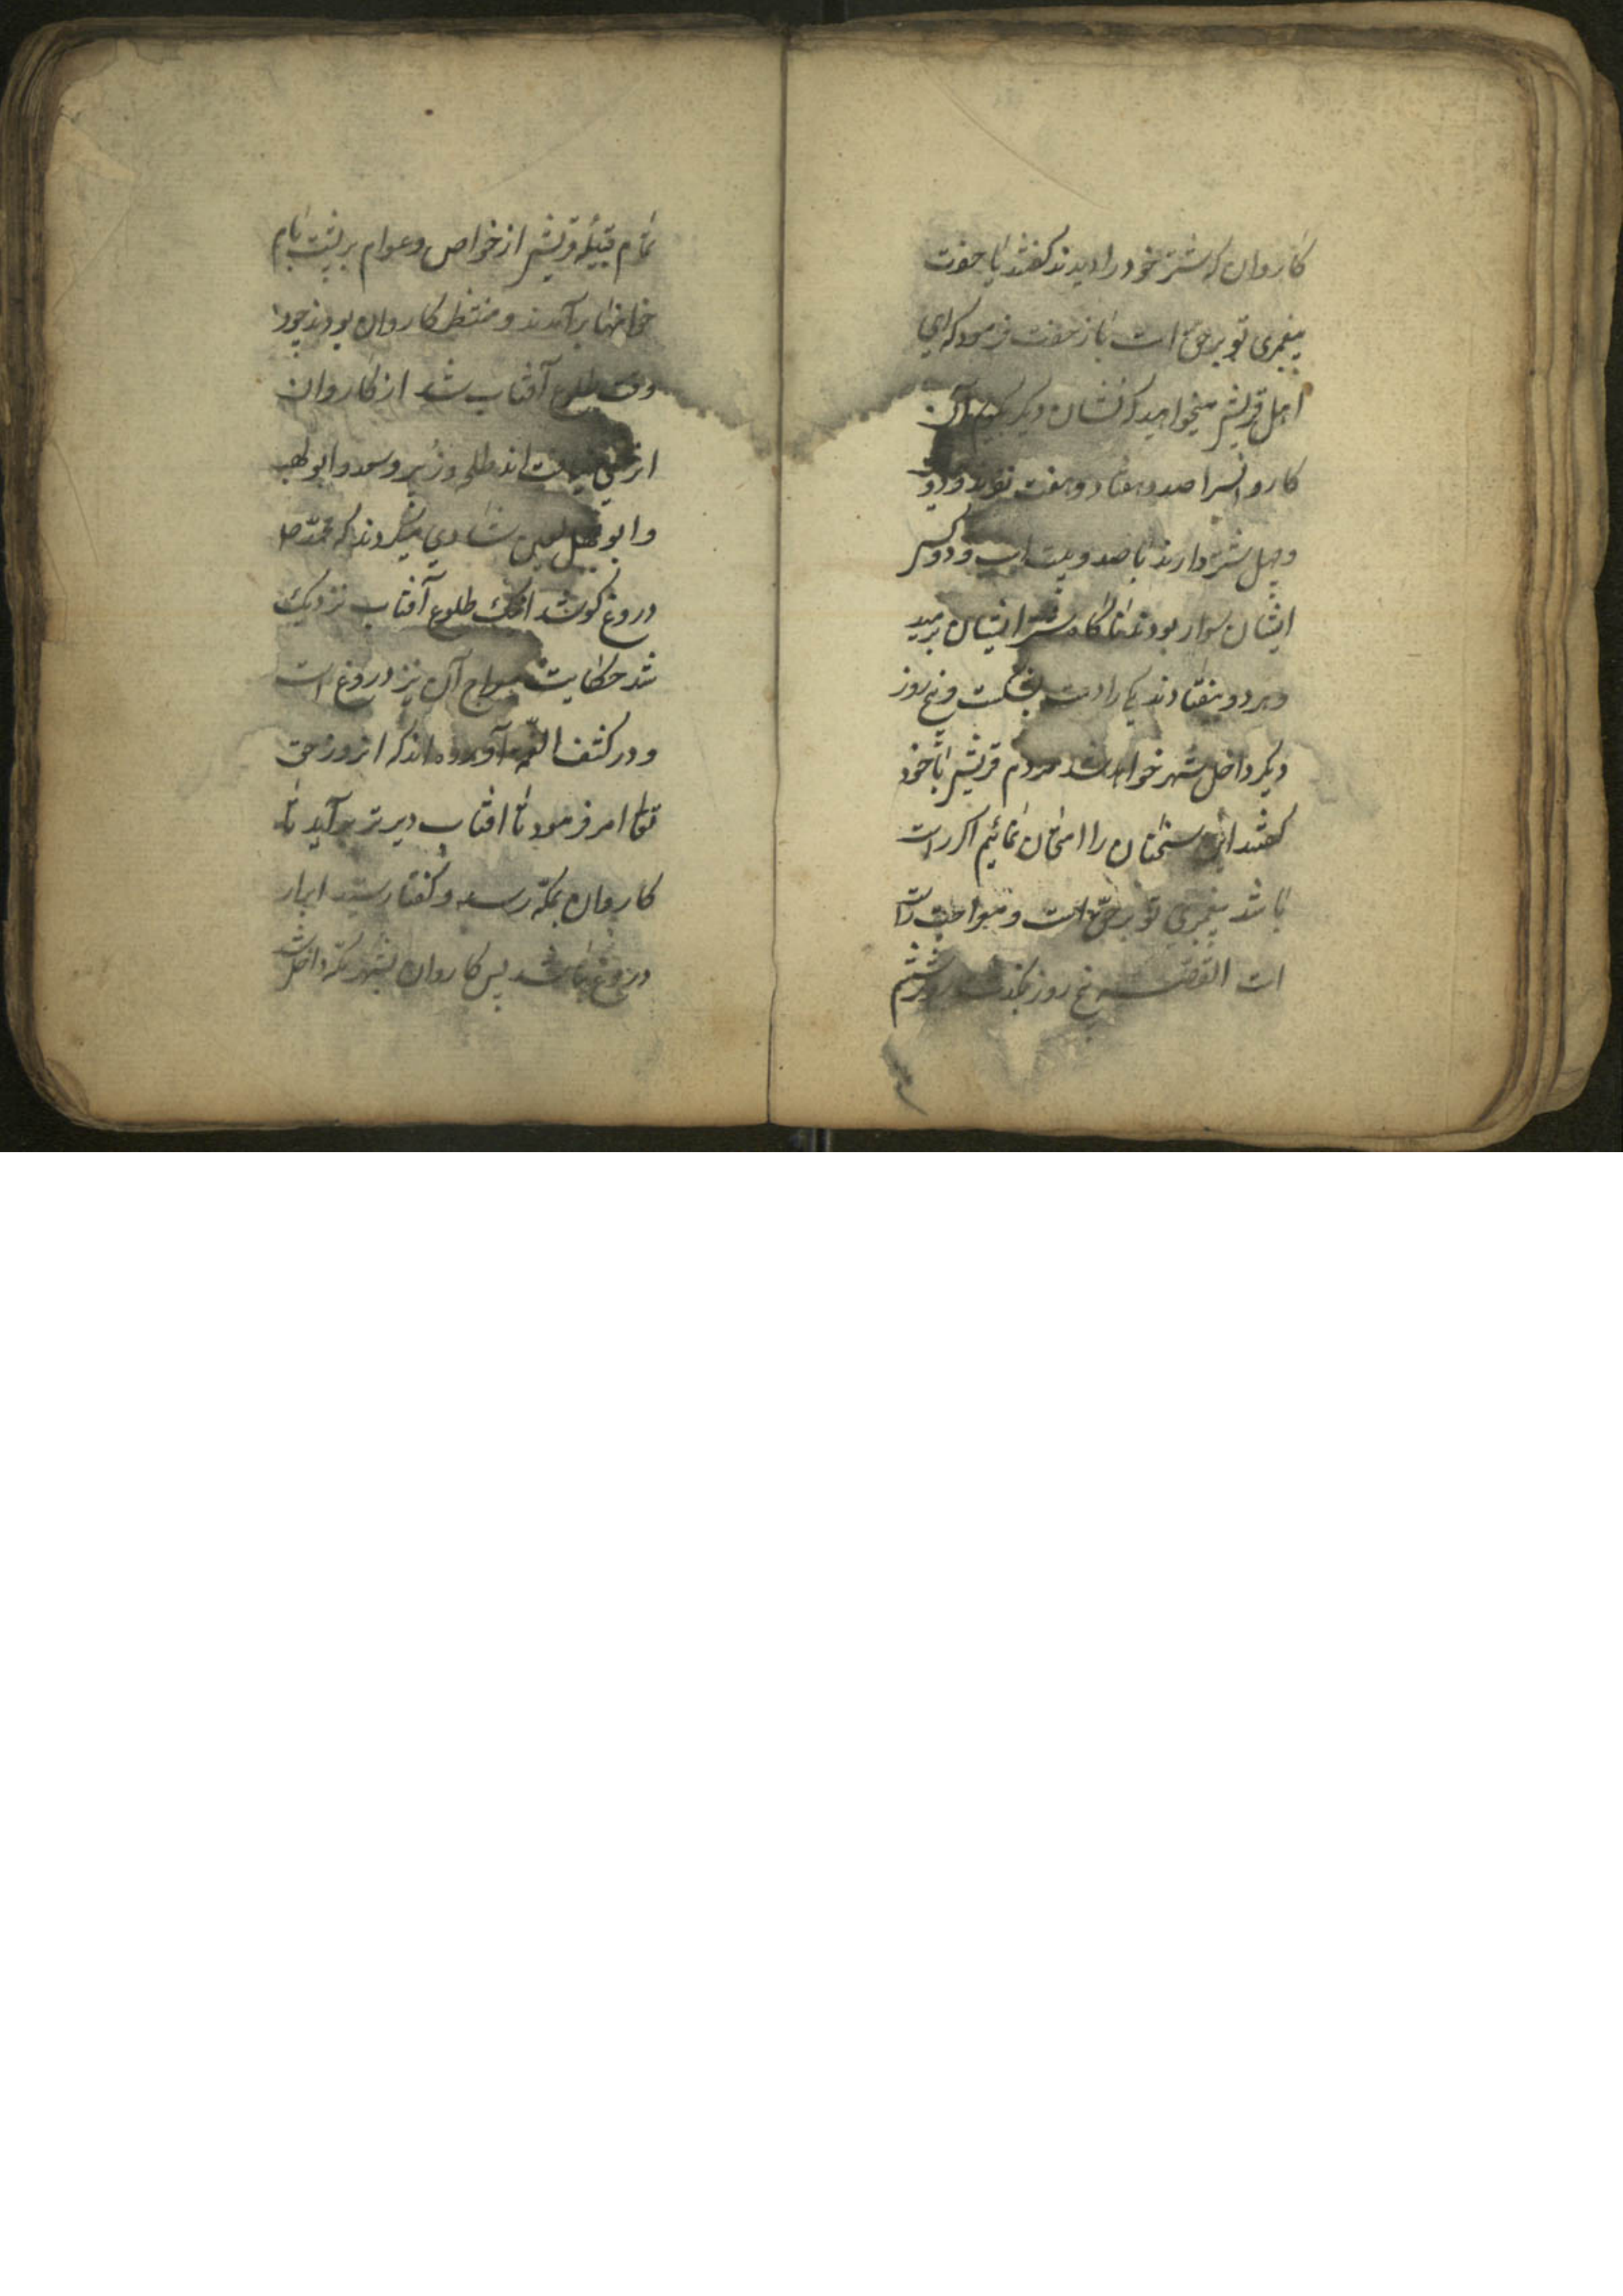 کاروان که شتر خود را دیدند گفتند یا حضرت
پیغمبری تو برحق است باز حضرت فرمود که ای
اهل قریش میخواهید که نشان دیگر بگویم آن
کاروانسرا صد و هفتاد و هفت نفرند و دویست
و چهل شتر دارند با صد و بیست اسپ و دو کس
ایشان سوار بودند ناگاه شتر ایشان برمید
و هر دو بیفتادند یکی را دست بشکست و پنج روز
دیگر داخل شهر خواهد شد مردم قریش با خود
گفتند این سخنان را امتحان نمائیم اگر راست
باشد پیغمبری تو برحق است و معراجت راست
است القصه پنج روز بگذشت روز ششم
تمام قبیله قریش از خواص و عوام بر پشت بام
خانها برآمدند و منتظر کاروان بودند چون
وقت طلوع آفتاب شد از کاروان
اثری نیافتند طلحه و زبیر و سعد و ابولهب
و ابوجهل لعین شادی میکردند که محمد ص
دروغ گو شد اینک طلوع آفتاب نزدیک
شد حکایت معراج آن نیز دروغ است
و در کشف الغمه آورده اند که انروز حق
تعالی امر فرمود تا افتاب دیرتر برآید تا
کاروان بمکه رسد و گفتار سید ابرار
دروغ نباشد پس کاروان بشهر مکه داخل شد